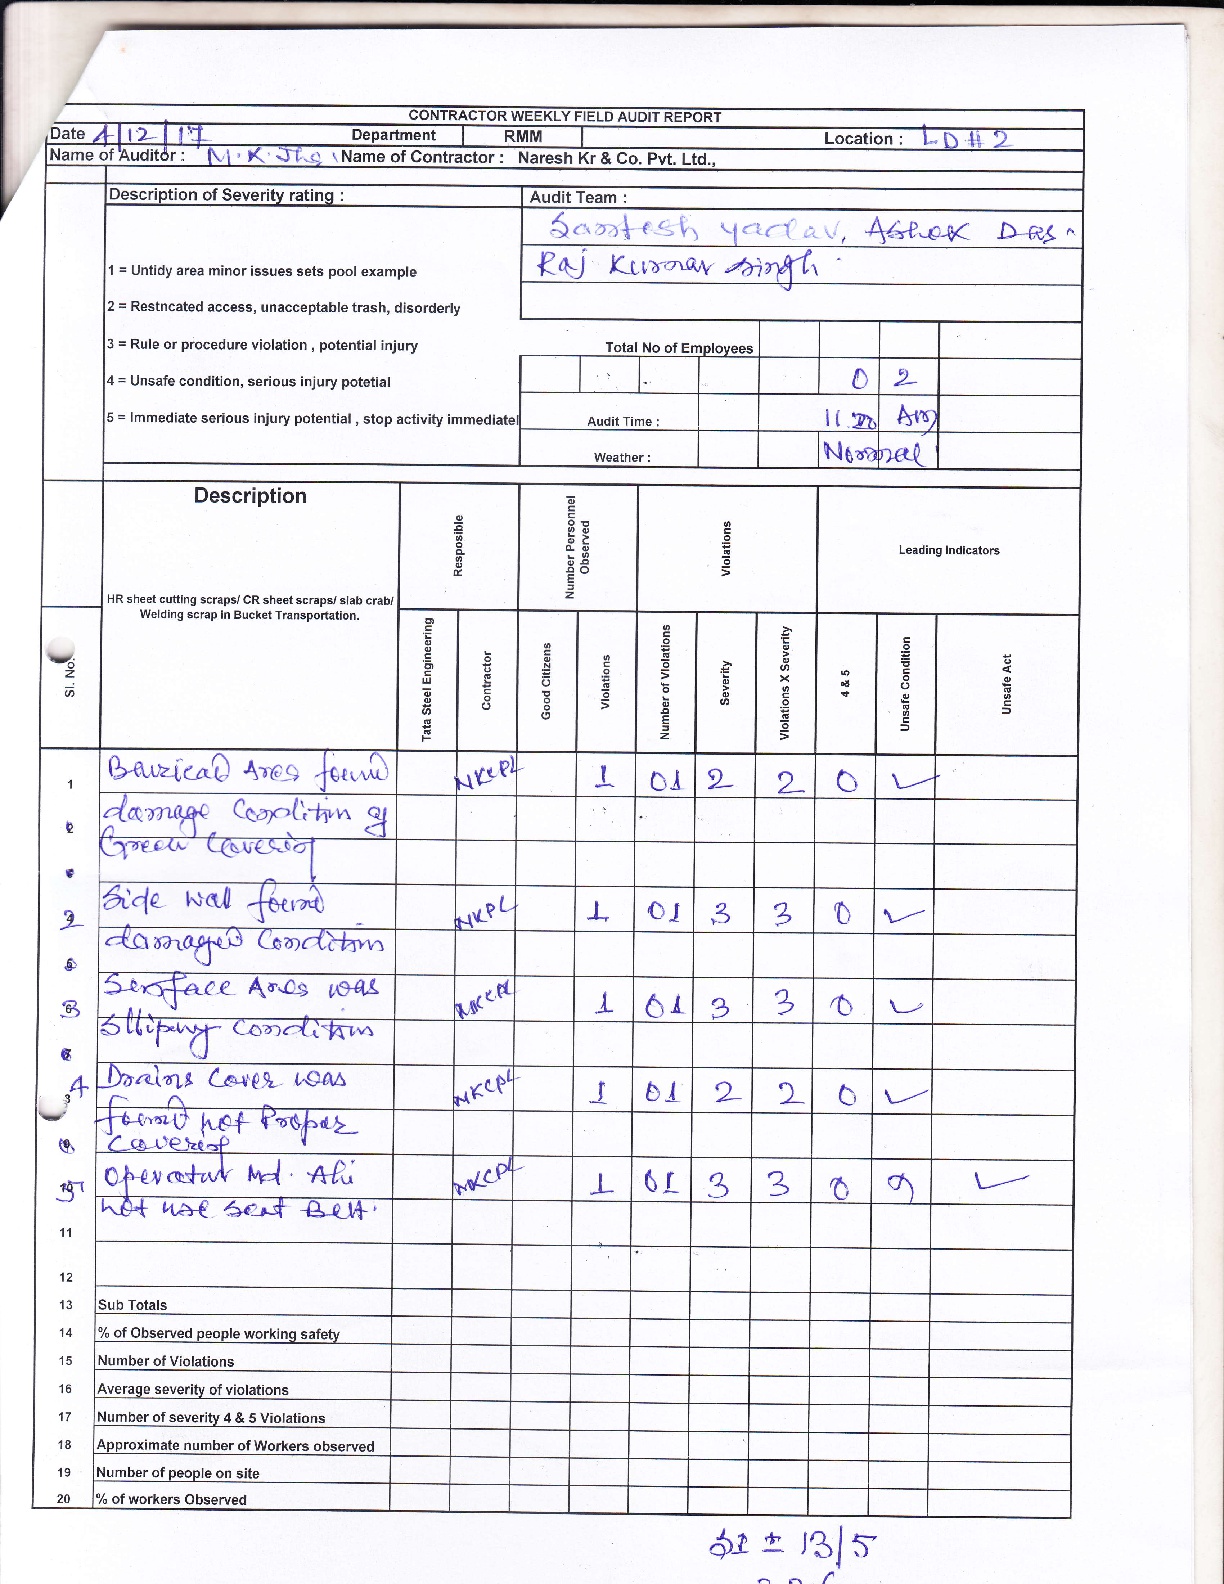 CONTRACTOR WEEKLY FIELD AUDIT REPORT
Date 4/12/17 Department RMM Location : LD # 2
Name of Auditor : M.K. Jha Name of Contractor : Naresh Kr & Co. Pvt. Ltd.,
Description of Severity rating : Audit Team :
Santosh Yadav, Ashok Das
Raj Kumar Singh
1 = Untidy area minor issues sets pool example
2 = Restncated access, unacceptable trash, disorderly
3 = Rule or procedure violation , potential injury Total No of Employees
4 = Unsafe condition, serious injury potetial 0 2
5 = Immediate serious injury potential , stop activity immediatel Audit Time : 11 Am
Weather : Normal
Description Resposible Number Personnel Observed Violations Leading Indicators
HR sheet cutting scraps/ CR sheet scraps/ slab crab/
Welding scrap in Bucket Transportation.
Sl. No. Tata Steel Engineering Contractor Good Citizens Violations Number of Violations Severity Violations X Severity 4 & 5 Unsafe Condition Unsafe Act
1 Area found NKCPL 1 01 2 2 0 ✓
damage Condition of
Green Covering
2 Side wall found NKPL 1 01 3 3 0 ✓
damaged Condition
3 Surface Area was NKCPL 1 01 3 3 0 ✓
Sllipery Condition
4 Drains Cover was NKCPL 1 01 2 2 0 ✓
found not Proper
Covered
5 Operator Md. Ali NKCPL 1 01 3 3 0 0 ✓
not use Seat Belt.
11
12
13 Sub Totals
14 % of Observed people working safety
15 Number of Violations
16 Average severity of violations
17 Number of severity 4 & 5 Violations
18 Approximate number of Workers observed
19 Number of people on site
20 % of workers Observed
SI = 13/5